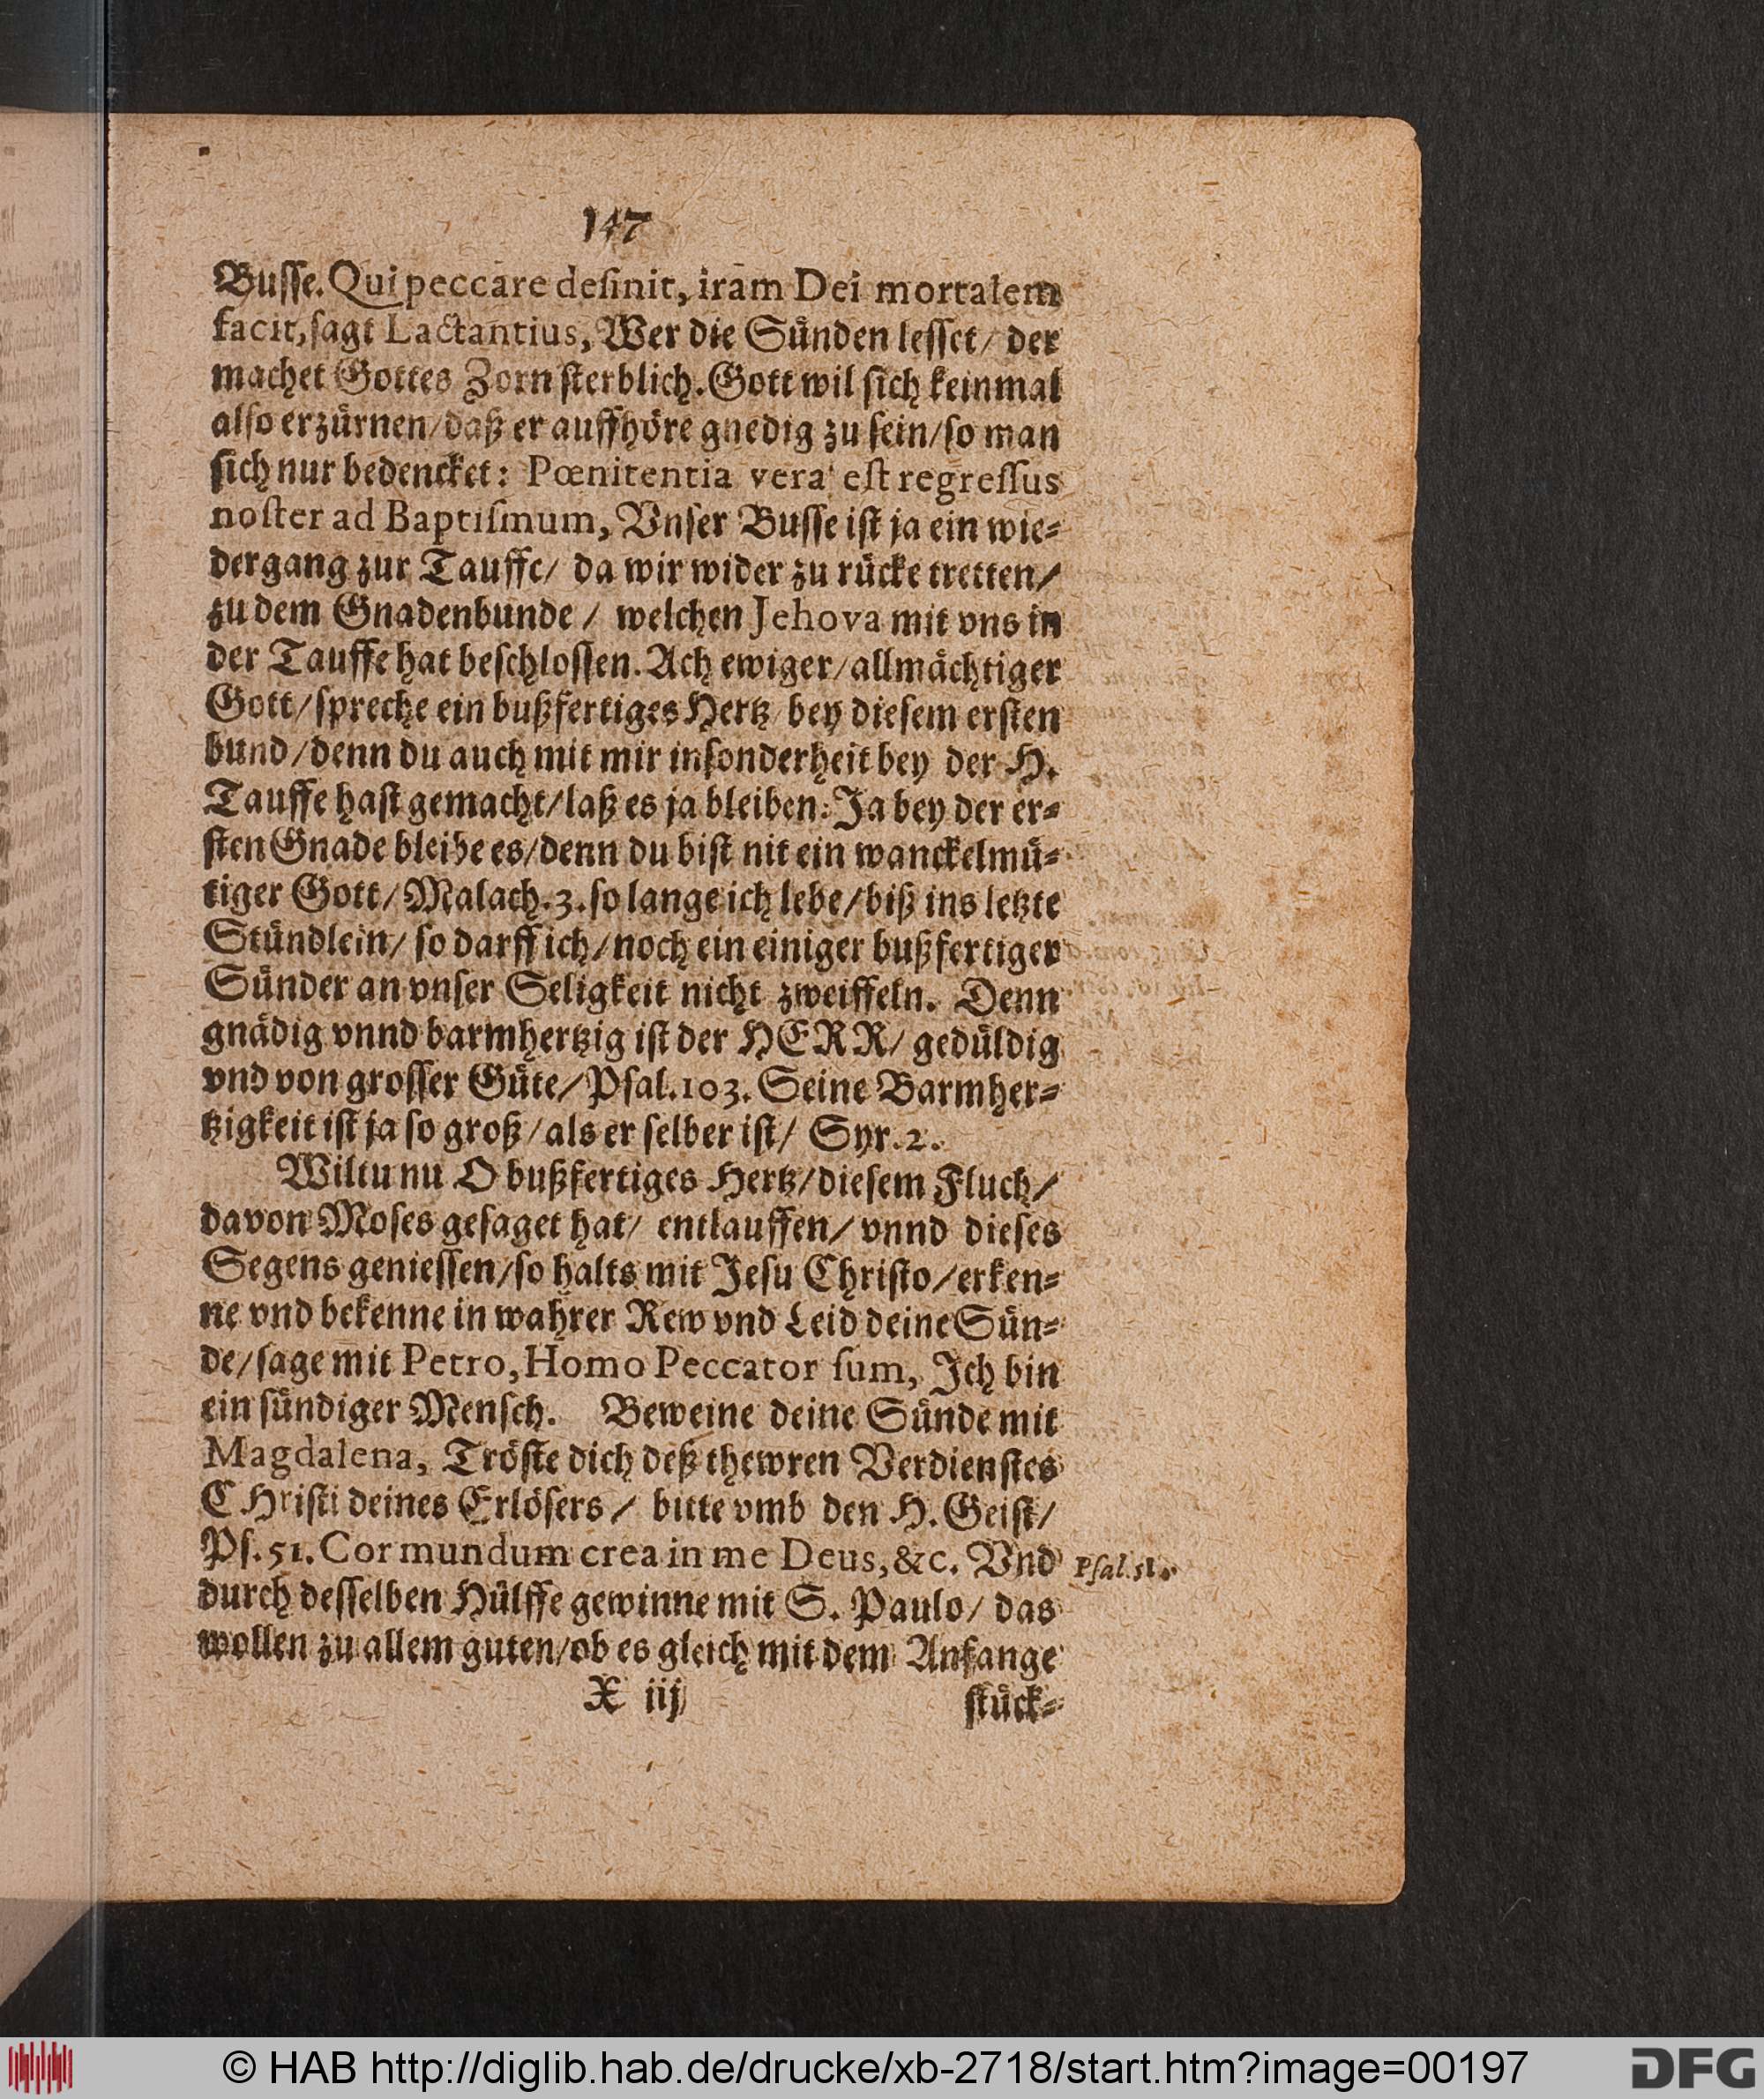 147
Busse. Qui peccare desinit, iram Dei mortalem
facit, sagt Lactantius, Wer die Sünden lesset / der
machet Gottes Zorn sterblich. Gott wil sich keinmal
also erzürnen / daß er auffhöre gnedig zu sein / so man
sich nur bedencket: Pœnitentia vera est regressus
noster ad Baptismum, Vnser Busse ist ja ein wie-
dergang zur Tauffe / da wir wider zu rücke tretten /
zu dem Gnadenbunde / welchen Jehova mit vns in
der Tauffe hat beschlossen. Ach ewiger / allmächtiger
Gott / spreche ein bußfertiges Hertz / bey diesem ersten
bund / denn du auch mit mir insonderheit bey der H.
Tauffe hast gemacht / laß es ja bleiben: Ja bey der er-
sten Gnade bleibe es / denn du bist nit ein wanckelmü-
tiger Gott / Malach. 3. so lange ich lebe / biß ins letzte
Stündlein / so darff ich / noch ein einiger bußfertiger
Sünder an vnser Seligkeit nicht zweiffeln. Denn
gnädig vnnd barmhertzig ist der HERR / gedüldig
vnd von grosser Güte / Psal. 103. Seine Barmher-
tzigkeit ist ja so groß / als er selber ist / Syr. 2.
Wiltu nu O bußfertiges Hertz / diesem Fluch /
davon Moses gesaget hat / entlauffen / vnnd dieses
Segens geniessen / so halts mit Jesu Christo / erken-
ne vnd bekenne in wahrer Rew vnd Leid deine Sün-
de / sage mit Petro, Homo Peccator sum, Ich bin
ein sündiger Mensch. Beweine deine Sünde mit
Magdalena, Tröste dich deß thewren Verdienstes
CHristi deines Erlösers / bitte vmb den H. Geist /
Ps. 51. Cor mundum crea in me Deus, &c. Vnd
Psal. 51.
durch desselben Hülffe gewinne mit S. Paulo / das
wollen zu allem guten / ob es gleich mit dem Anfange
X iij
stück-
© HAB http://diglib.hab.de/drucke/xb-2718/start.htm?image=00197
DFG